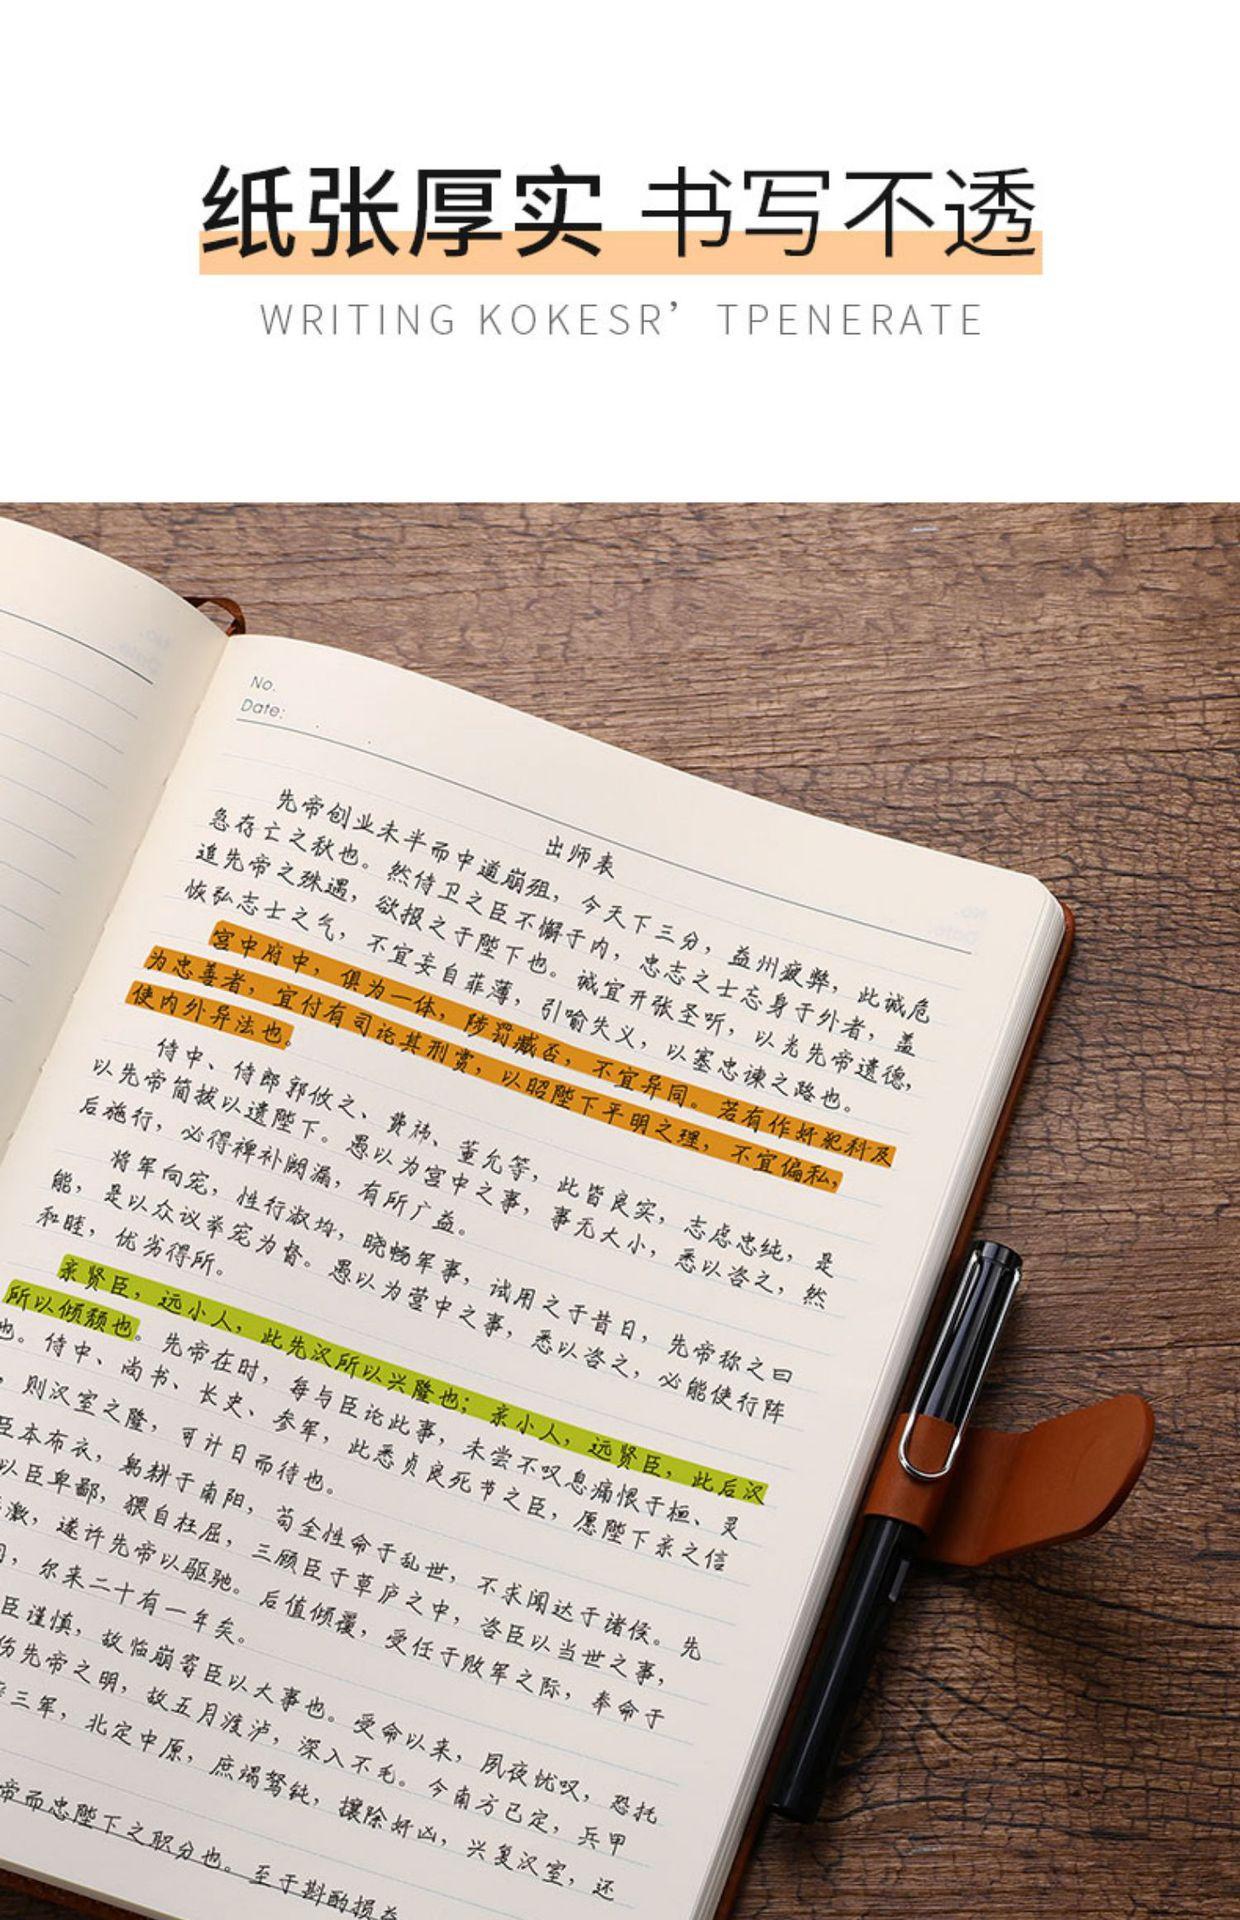 纸张厚实 书写不透
WRITING KOKESR’ TPENERATE
No.
Date:
出师表
先帝创业未半而中道崩殂，今天下三分，益州疲弊，此诚危
急存亡之秋也。然侍卫之臣不懈于内，忠志之士忘身于外者，盖
追先帝之殊遇，欲报之于陛下也。诚宜开张圣听，以光先帝遗德，
恢弘志士之气，不宜妄自菲薄，引喻失义，以塞忠谏之路也。
宫中府中，俱为一体，陟罚臧否，不宜异同。若有作奸犯科及
为忠善者，宜付有司论其刑赏，以昭陛下平明之理，不宜偏私，
使内外异法也。
侍中、侍郎郭攸之、费祎、董允等，此皆良实，志虑忠纯，是
以先帝简拔以遗陛下。愚以为宫中之事，事无大小，悉以咨之，然
后施行，必得裨补阙漏，有所广益。
将军向宠，性行淑均，晓畅军事，试用之于昔日，先帝称之曰
能，是以众议举宠为督。愚以为营中之事，悉以咨之，必能使行阵
和睦，优劣得所。
亲贤臣，远小人，此先汉所以兴隆也；亲小人，远贤臣，此后汉
所以倾颓也。先帝在时，每与臣论此事，未尝不叹息痛恨于桓、灵
也。侍中、尚书、长史、参军，此悉贞良死节之臣，愿陛下亲之信
，则汉室之隆，可计日而待也。
臣本布衣，躬耕于南阳，苟全性命于乱世，不求闻达于诸侯。先
以臣卑鄙，猥自枉屈，三顾臣于草庐之中，咨臣以当世之事，
激，遂许先帝以驱驰。后值倾覆，受任于败军之际，奉命于
，尔来二十有一年矣。
臣谨慎，故临崩寄臣以大事也。受命以来，夙夜忧叹，恐托
伤先帝之明，故五月渡泸，深入不毛。今南方已定，兵甲
三军，北定中原，庶竭驽钝，攘除奸凶，兴复汉室，还
帝而忠陛下之职分也。至于斟酌损益